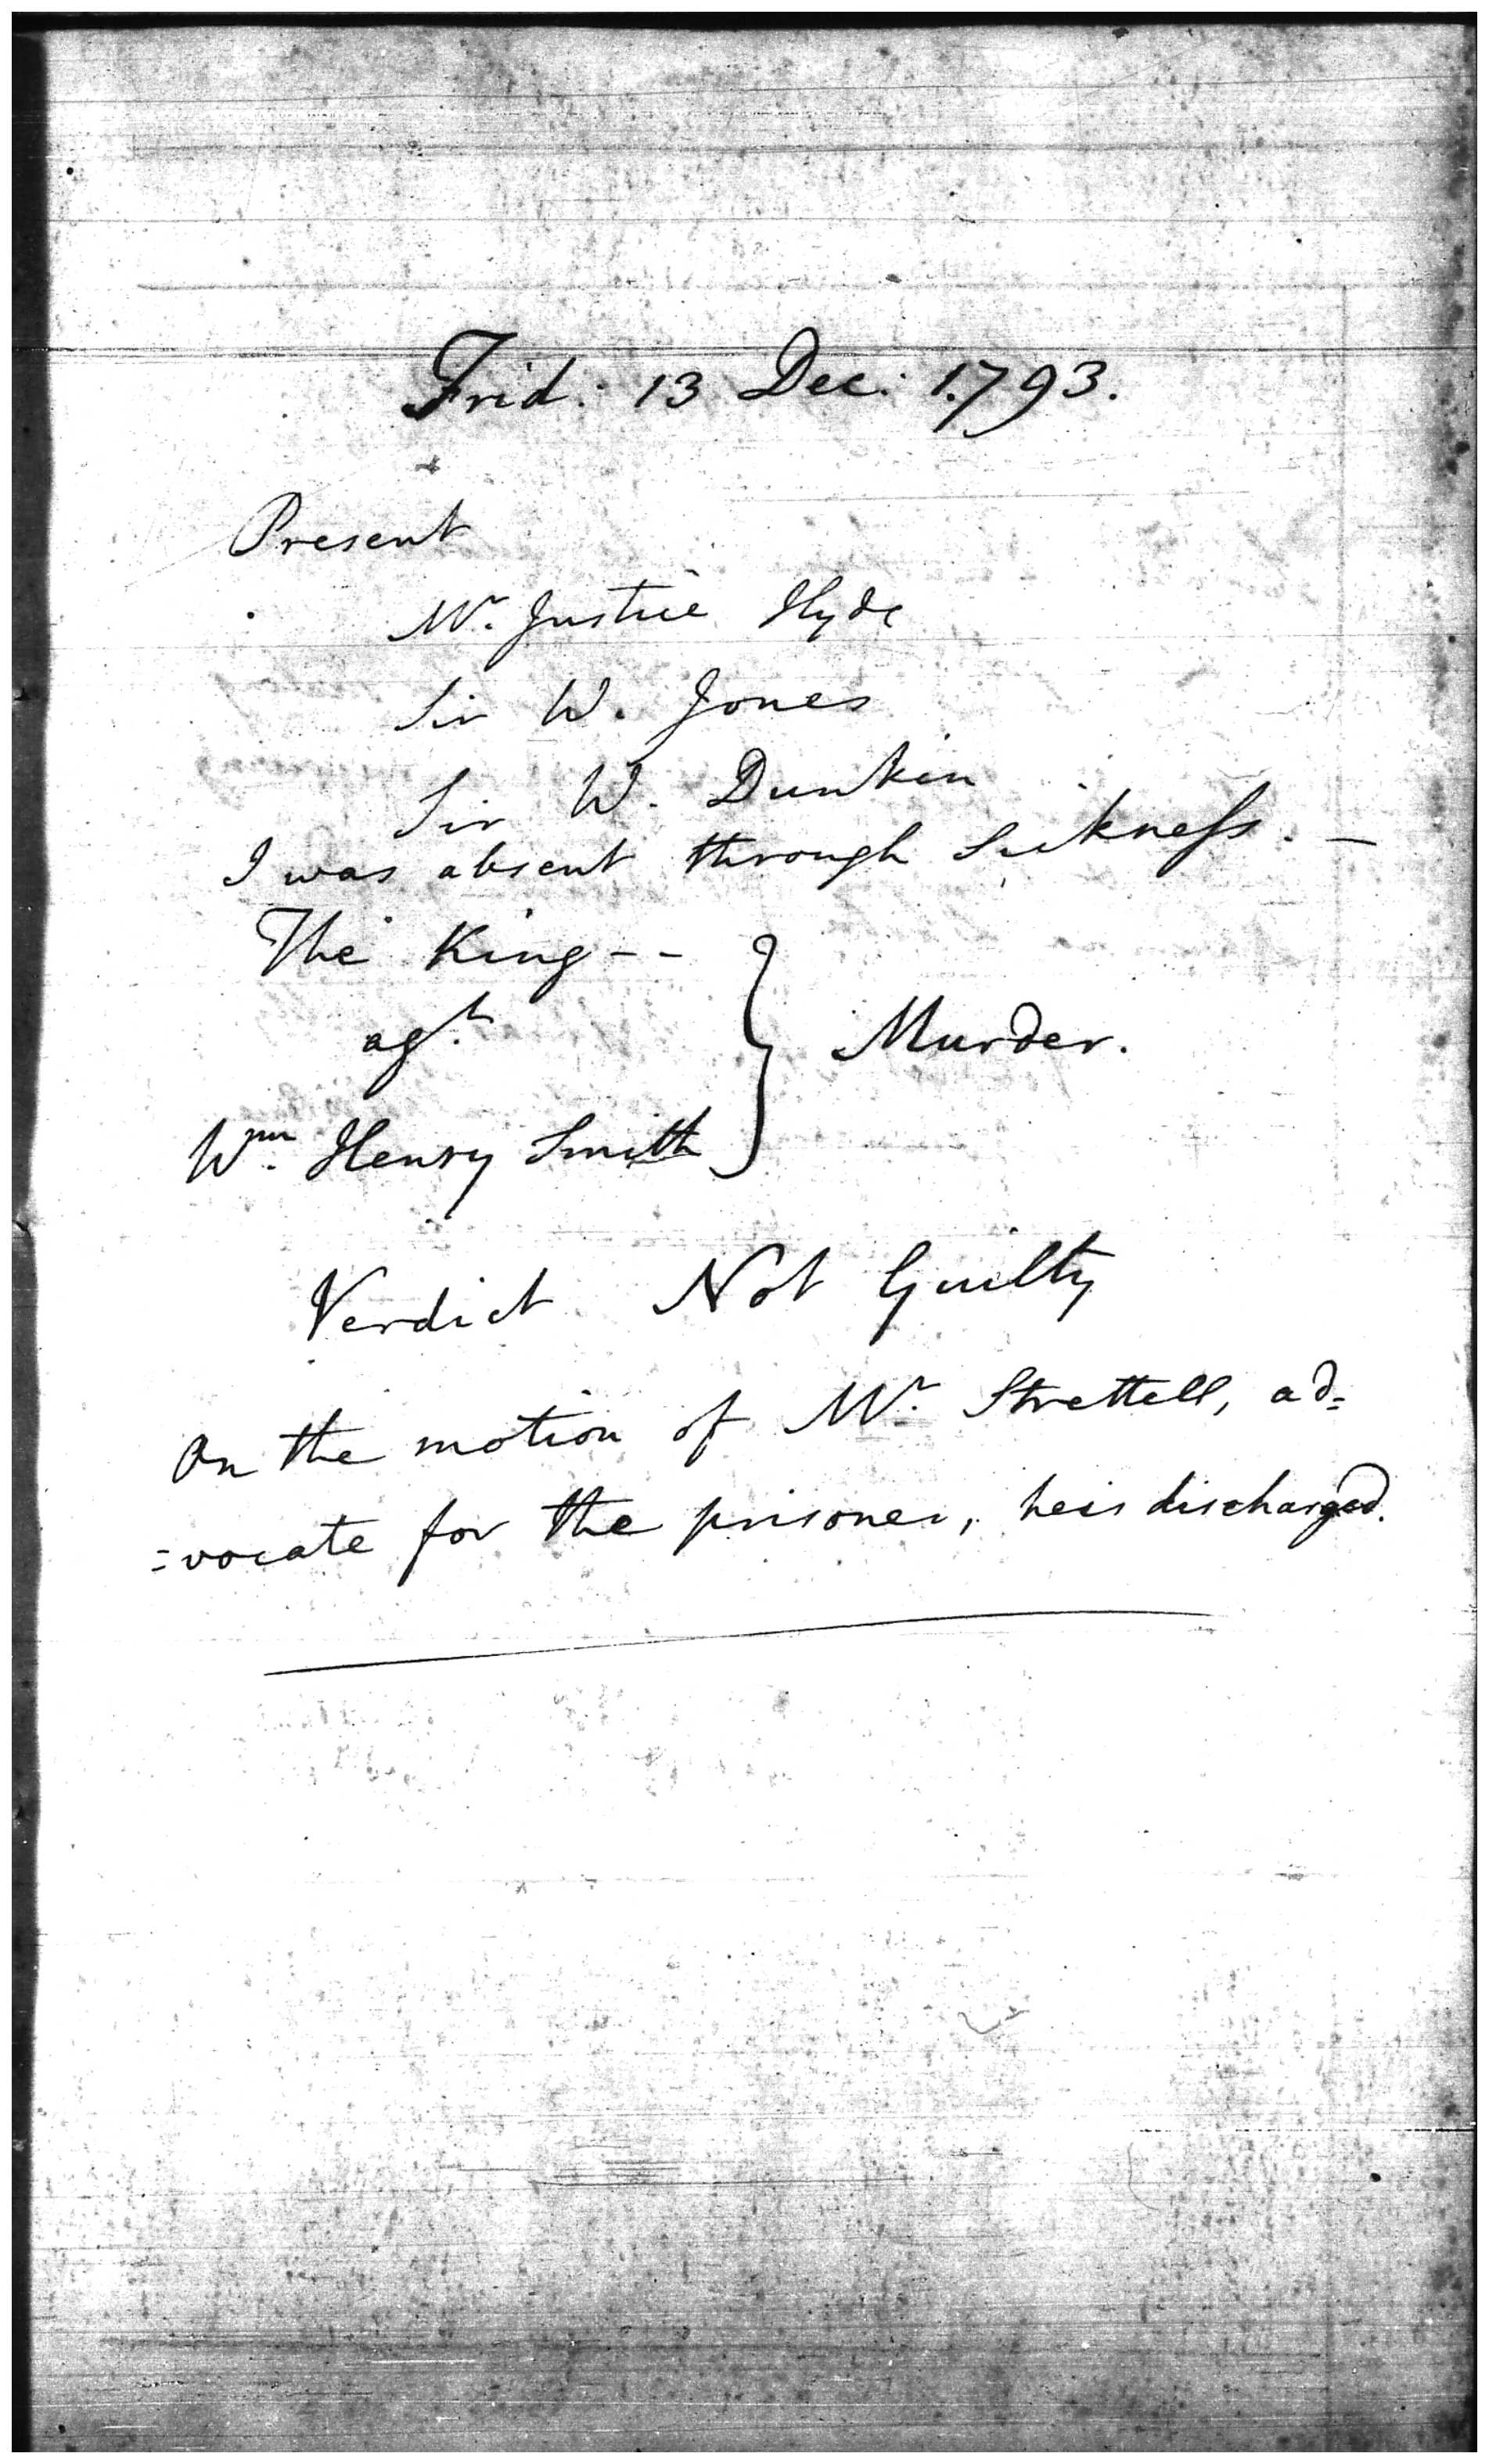 Frid: 13 Dec: 1793.
Present
Mr. Justice Hyde
Sir W. Jones
Sir W. Dunkin
I was absent through Sickneſs. —
The King - -
agt.
Murder.
Wm. Henry Smith
Verdict Not Guilty
On the motion of Mr. Strettell, ad=
=vocate for the prisoner, he is discharged.